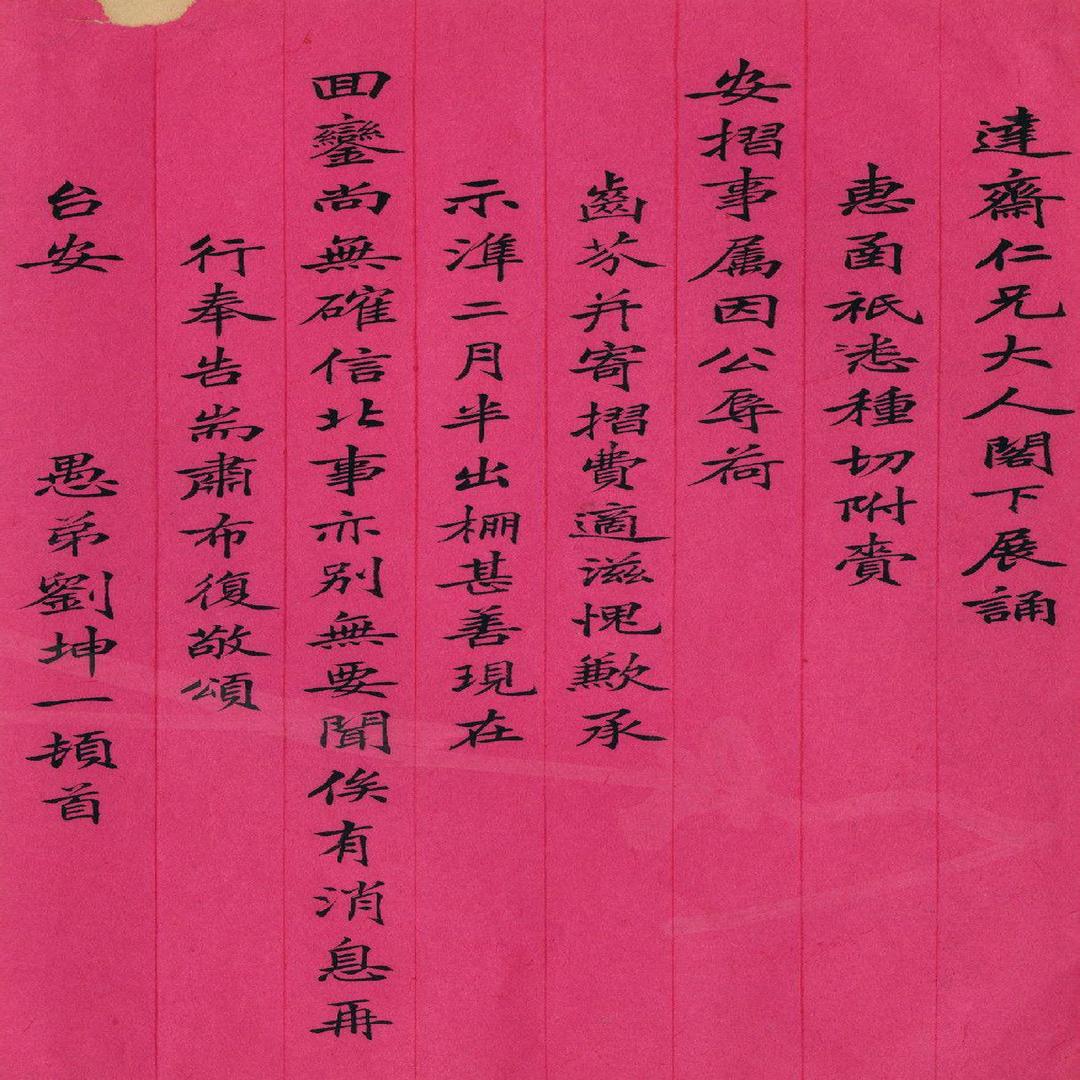 達齋仁兄大人閣下展誦
惠函祗悉種切附賫
安摺事属因公辱荷
齒芬并寄摺費適滋愧歉承
示準二月半出棚甚善現在
回鑾尚無確信北事亦别無要聞俟有消息再
行奉告耑肅布復敬頌
台安 愚弟劉坤一頓首